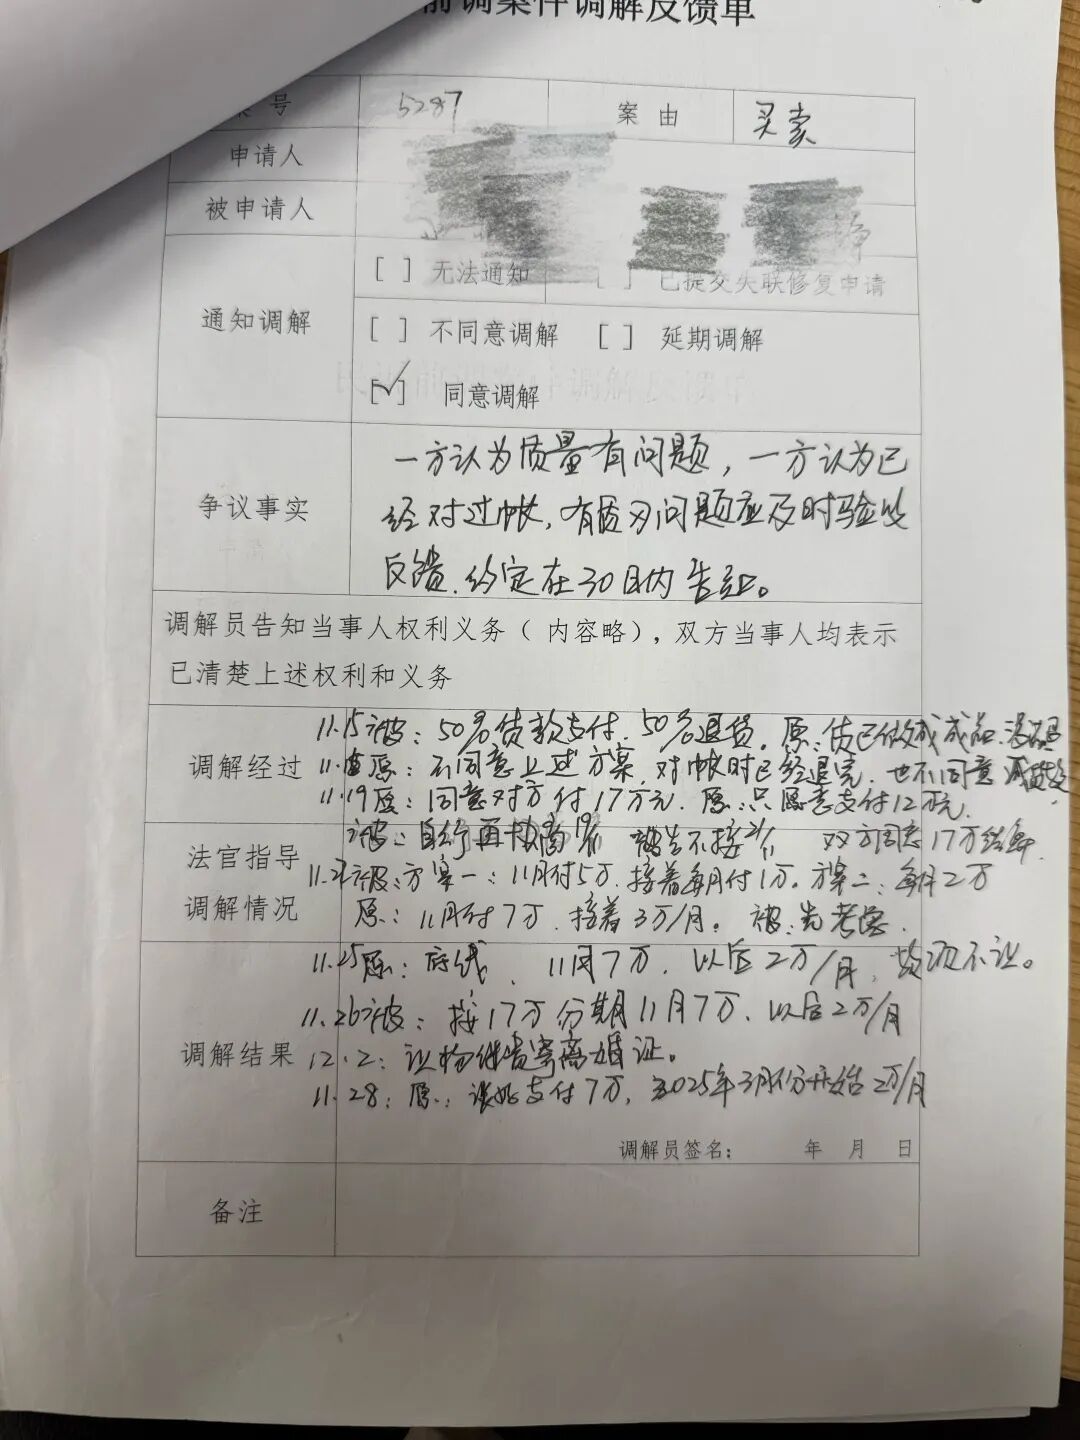 前调案件调解反馈单
号 5287 案由 买卖
申请人
被申请人
通知调解
[ ] 无法通知 [ ] 已提交失联修复申请
[ ] 不同意调解 [ ] 延期调解
[✓] 同意调解
争议事实
一方认为质量有问题，一方认为已
经对过帐，有质为问题应及时验收
反馈.约定在30日内告知。
调解员告知当事人权利义务（ 内容略），双方当事人均表示
已清楚上述权利和义务
调解经过
11.15被：50%货款支付.50%退货。原：货已做成成品.
原：不同意上述方案，对帐时已经退完，也不同意
11.19原：同意对方付17万元.原：只愿意支付12万元.
法官指导
调解情况
被：自行再协商 19/11 被告不接 21/11 双方同意17万
被：方案一：11月付5万.接着每月付1万。方案二：每月2万
原：11月付7万.接着3万/月。 被：先考虑.
调解结果
11.25原：底线. 11月7万.以后2万/月，
11.26被：接17万分期11月7万.以后2万/月
12.2：离婚证。
11.28：原：支付7万，2025年3月份开始2万/月
调解员签名： 年 月 日
备注